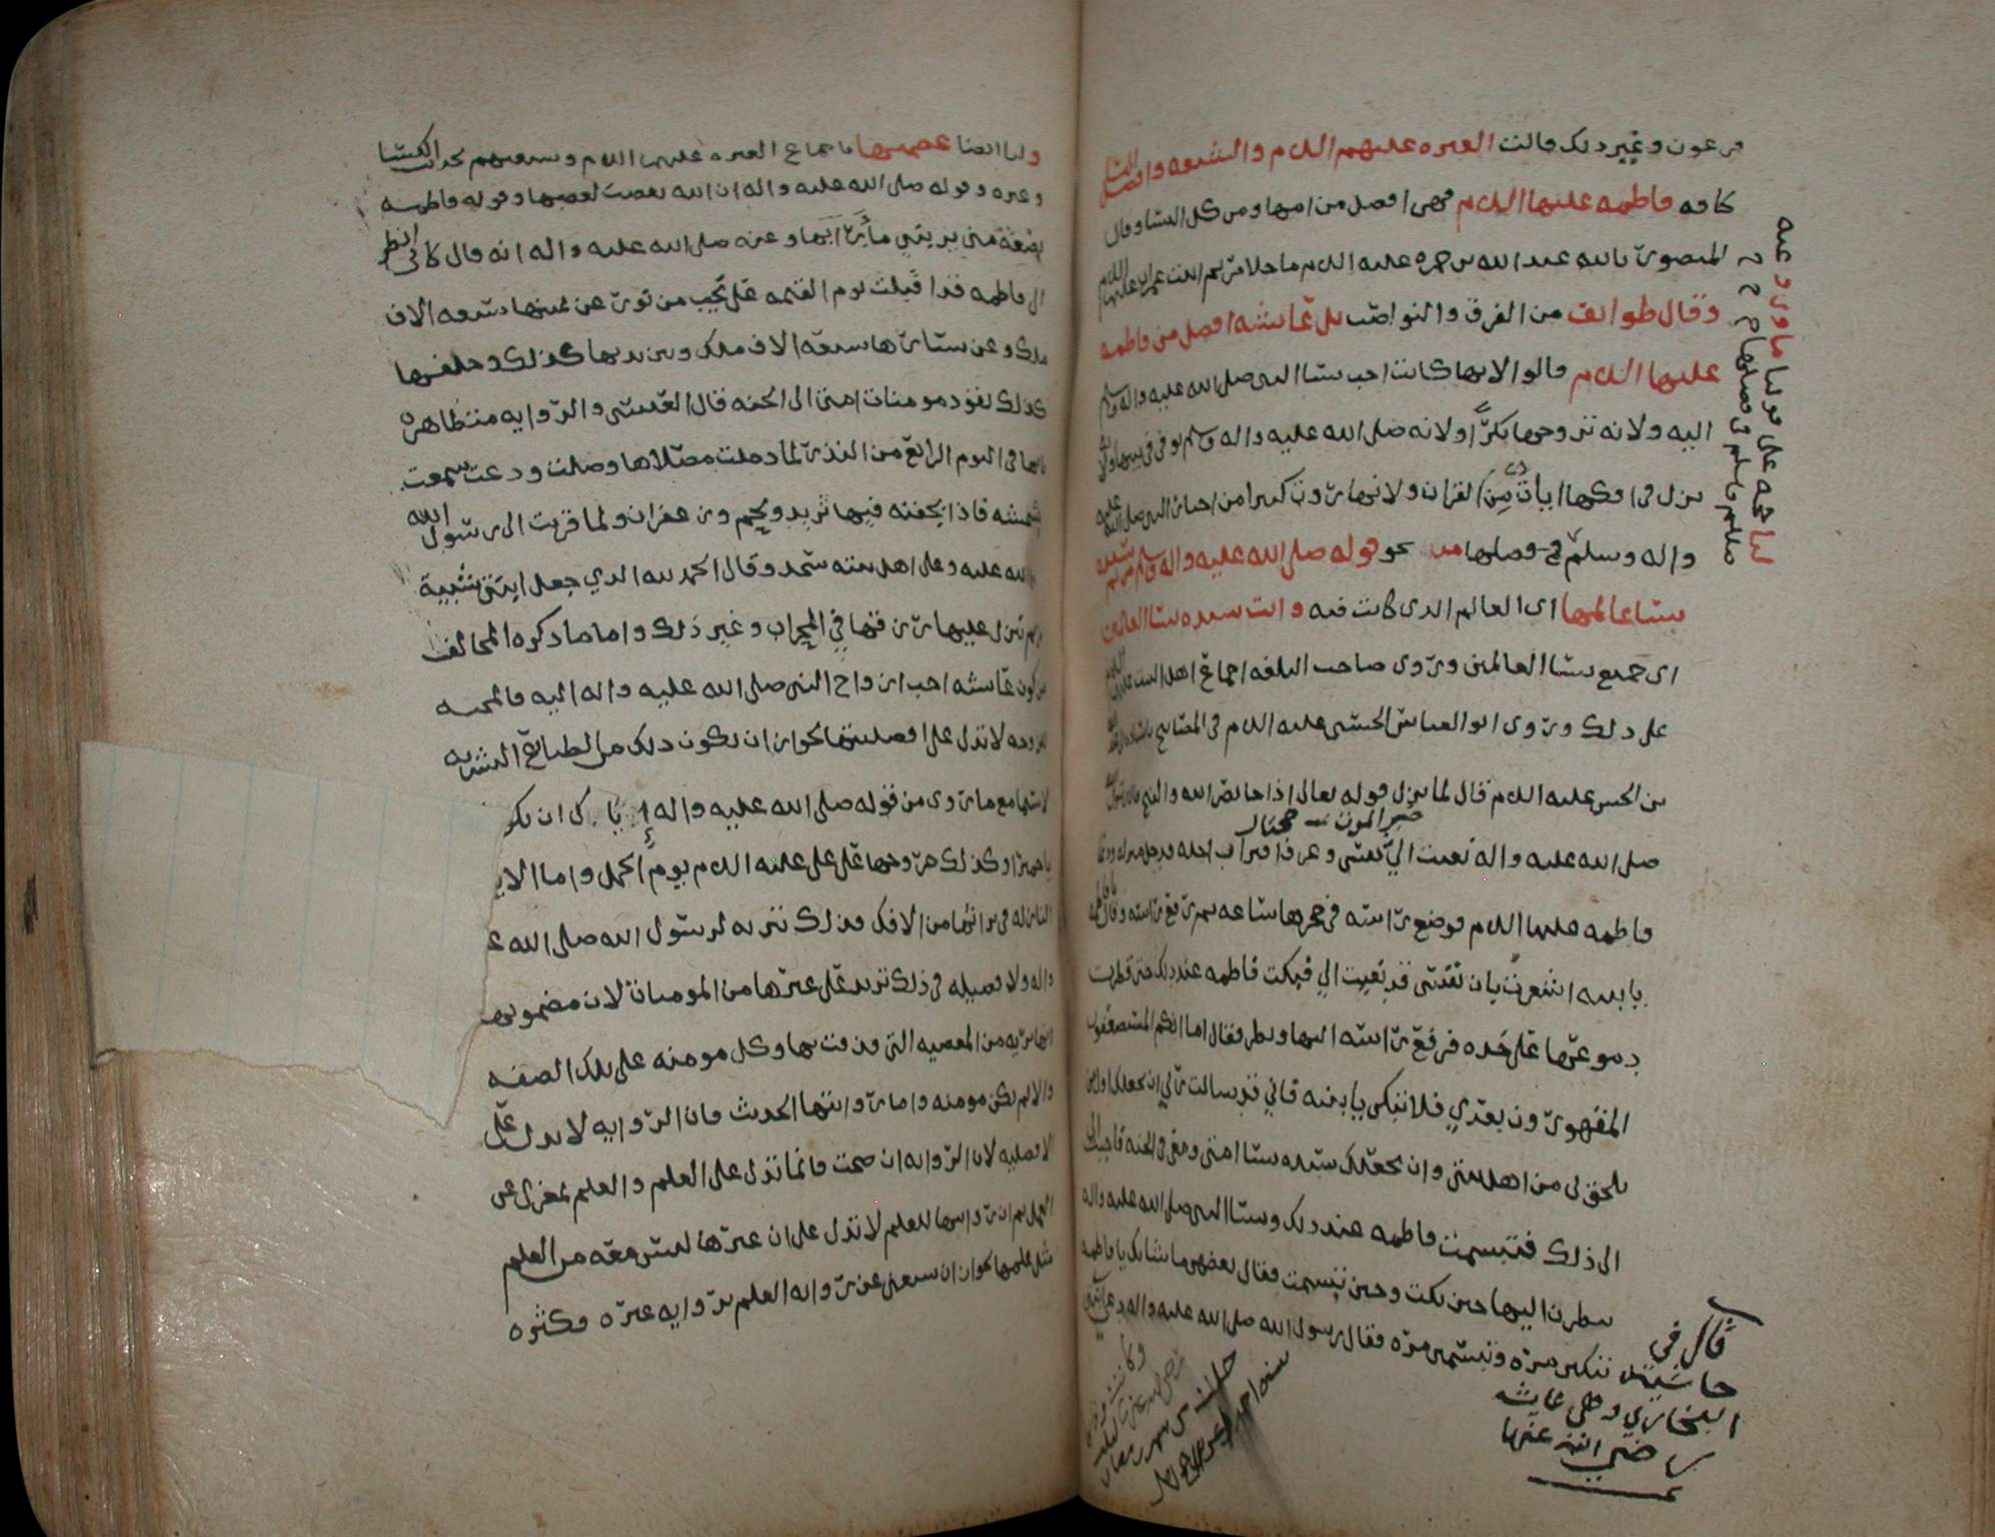 فرعون وغير ذلك قالت العتره عليهم السلام والشيعه وافضل النسا
كافه فاطمه عليها السلام فهي افضل من امها ومن كل النسا وقال
المنصور بالله عبد الله بن حمزه عليه السلام ما خلا مريم ابنت عمران عليها السلام
وقال طوائف من الفرق والنواصب بل عائشه افضل من فاطمه
عليها السلام قالوا لانها كانت احب نسا النبي صلى الله عليه واله وسلم
اليه ولانه تزوجها بكرًا ولانه صلى الله عليه واله وسلم توفي في بيتها ولانه
نزل في افكها ايات من القران ولانها روت كثيرا من اخبار النبي صلى الله عليه
واله وسلم في فضلها من نحو قوله صلى الله عليه واله وسلم مريم سيده
نسا عالمها اي العالم الذي كانت فيه وانت سيده نسا العالمين
اي جميع نسا العالمين وروى صاحب البلغه اجماع اهل البيت عليهم السلام
على ذلك وروى ابو العباس الحسني عليه السلام في المصابيح
بن الحسن عليه السلام قال لما نزل قوله تعالى اذا جا نصر الله والفتح قال رسول الله
صلى الله عليه واله نعيت الي نفسي وعرف اقتراب اجله فدخل منزله ودعا
فاطمه عليها السلام فوضع راسه في حجرها ساعه ثم رفع راسه وقال يا فاطمه
يا بنيه اشعرت بان نفسي قد نعيت الي فبكت فاطمه عند ذلك حتى قطرت
دموعها على خده فرفع راسه اليها ونظر فقال اما انكم المستضعفون
المقهورون بعدي فلا تبكي يا بنيه فاني قد سالت ربي ان يجعلك اول من
يلحق بي من اهل بيتي وان يجعلك سيده نسا امتي ومعي في الجنه فاجبت
الى ذلك فتبسمت فاطمه عند ذلك ونسا النبي صلى الله عليه واله
ينظرن اليها حين بكت وحين تبسمت فقال بعضهن ما شانك يا فاطمه
تبكين مره وتبسمين مره فقال رسول الله صلى الله عليه واله
قال في
حاشيه
البخاري وهي عايشه
رضي الله عنها
ولنا ايضا عصمتها باجماع العتره عليهم السلام وشيعتهم لخبر الكسا
وغيره وقوله صلى الله عليه واله ان الله يغضب لغضبها وقوله فاطمه
بضعة مني يريبني ما رابها وعنه صلى الله عليه واله انه قال كاني انظر
الى فاطمه قد اقبلت يوم القيمه على نجيب من نور عن يمينها سبعه الاف
ملك وعن يسارها سبعه الاف ملك وبين يديها كذلك وخلفها
كذلك تقود مومنات امتي الى الجنه قال القرشي والروايه متظاهره
بانها في اليوم الرابع من النذر لما دخلت مصلاها وصلت ودعت سمعت
خشخشه فاذا بجفنه فيها ثريد ولحم وزعفران ولما قربت الى رسول الله
صلى الله عليه وعلى اهل بيته سجد وقال الحمد لله الذي جعل ابنتي شبيهة
مريم ينزل عليها رزقها في المحراب وغير ذلك واما ما ذكره المخالف
من كون عائشه احب ازواج النبي صلى الله عليه واله اليه فالمحبه
للزوجه لا تدل على افضليتها لجواز ان يكون ذلك من الطبائع البشريه
لا سيما مع ما روى من قوله صلى الله عليه واله اياك ان تكو
يا حميرا وكذلك خروجها على علي عليه السلام يوم الجمل واما الاي
النازله في براتها من الافك فذلك تنزيه لرسول الله صلى الله ع
واله ولا فضيله في ذلك تزيد على غيرها من المومنات لان مضمونها
انها بريه من المعصيه التي قذفت بها وكل مومنه على تلك الصفه
والا لم تكن مومنه واما روايتها الحديث فان الروايه لا تدل على
الافضليه لان الروايه ان صحت فانما تدل على العلم والعلم بمعزل عن
العمل ثم ان روايتها للعلم لا تدل على ان غيرها ليس معه من العلم
مثل علمها لجواز ان يستغنى عن روايه العلم بروايه غيره وكثره